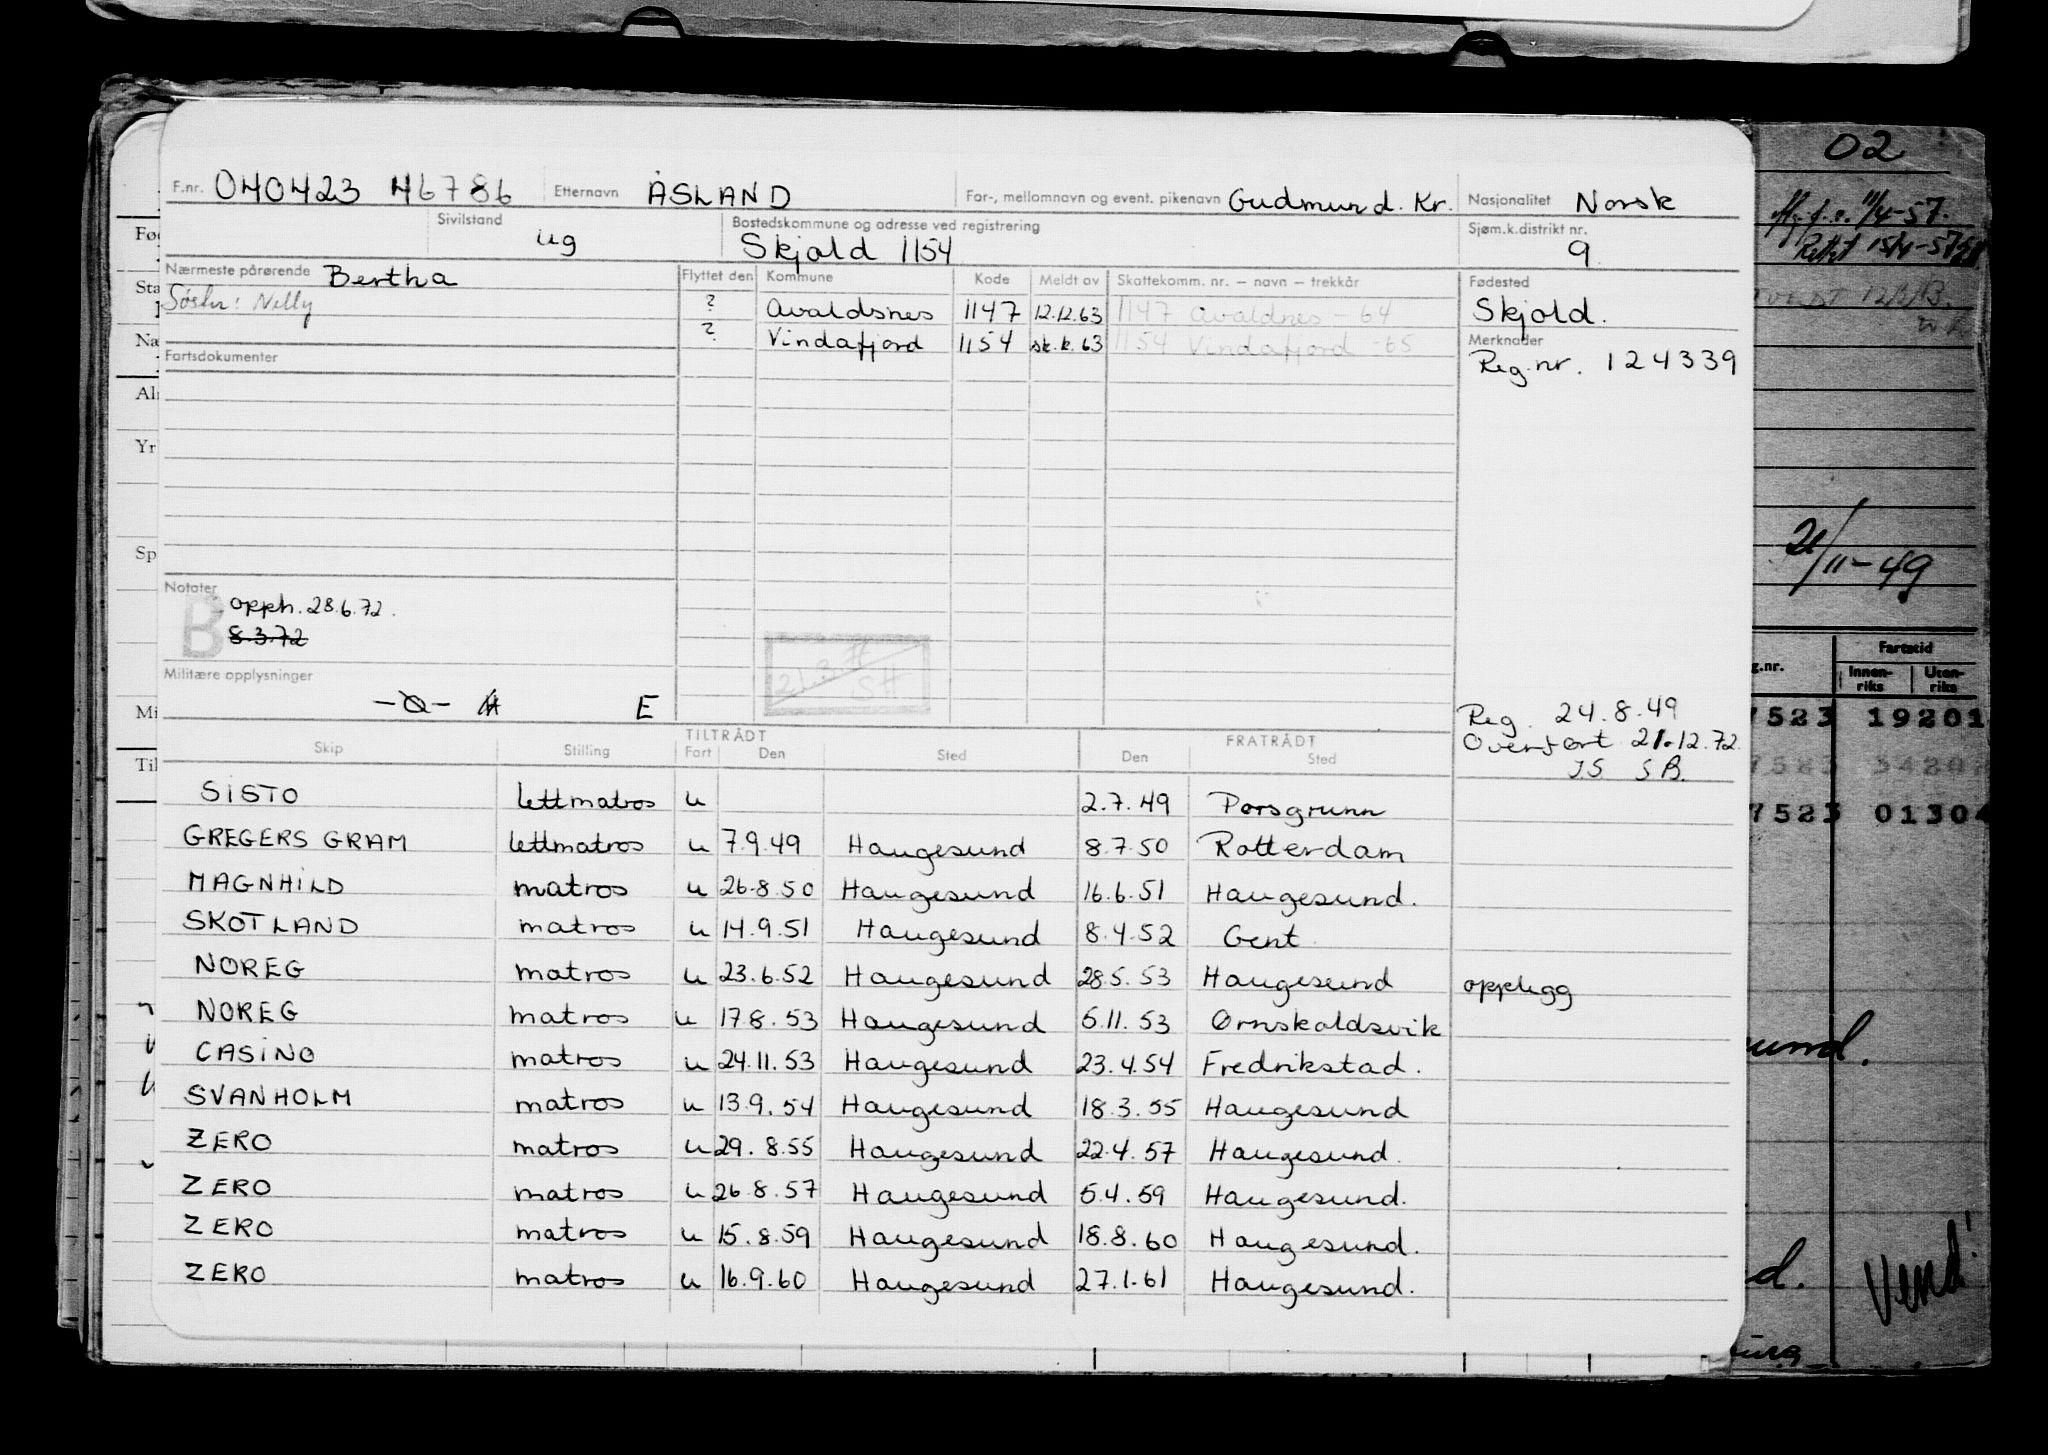 F.nr. 040423 46786 Etternavn ÅSLAND For-, mellomnavn og event. pikenavn Gudmund. Kr. Nasjonalitet Norsk
Sivilstand ug Bostedskommune og adresse ved registrering Skjold 1154 Sjøm.k.distrikt nr. 9.
Nærmeste pårørende Bertha Flyttet den Kommune Kode Meldt av Skattekomm. nr. – navn – trekkår Fødested
Søster: Nelly ? Avaldsnes 1147 12.12.63 1147 Avaldnes - 64 Skjold.
? Vindafjord 1154 sk.k. 63 1154 Vindafjord - 65 Merknader
Fartsdokumenter Reg.nr. 124339
Notater
B opph. 28.6.72.
8.3.72
21.3.
SH
Militære opplysninger
E
Reg. 24.8.49
Overført 21.12.72.
JS SB.
TILTRÅDT FRATRÅDT
Skip Stilling Fart Den Sted Den Sted
SISTO lettmatros u 2.7.49 Porsgrunn
GREGERS GRAM lettmatros u 7.9.49 Haugesund 8.7.50 Rotterdam
MAGNHILD matros u 26.8.50 Haugesund 16.6.51 Haugesund.
SKOTLAND matros u 14.9.51 Haugesund 8.4.52 Gent
NOREG matros u 23.6.52 Haugesund 28.5.53 Haugesund opplegg
NOREG matros u 17.8.53 Haugesund 5.11.53 Ørnskoldsvik
CASINO matros u 24.11.53 Haugesund 23.4.54 Fredrikstad.
SVANHOLM matros u 13.9.54 Haugesund 18.3.55 Haugesund
ZERO matros u 29.8.55 Haugesund 22.4.57 Haugesund.
ZERO matros u 26.8.57 Haugesund 5.4.59 Haugesund.
ZERO matros u 15.8.59 Haugesund 18.8.60 Haugesund.
ZERO matros u 16.9.60 Haugesund 27.1.61 Haugesund.
02
11/4-57.
Rettet 15/4-57
21/11-49
g.nr. Fartstid
Innen-riks Uten-riks
7523 19201
7523 3420
7523 01304
und.
d. Vend!